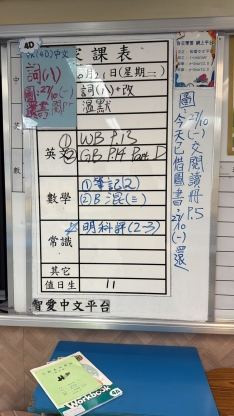 4D
中文
詞(八)
圖：27/10(一)
家課表
日(星期二)
詞(八)+改
溫默
英
① WB P.13
② GB P.14 Part D
數學
① 筆記(2)
② B 混(三)
常識
明科評(2-3)
其它
值日生
11
智愛中文平台
圖
27/10(一)文閱讀冊P.5
今天已借圖書：27/10(一)還
Workbook
4A